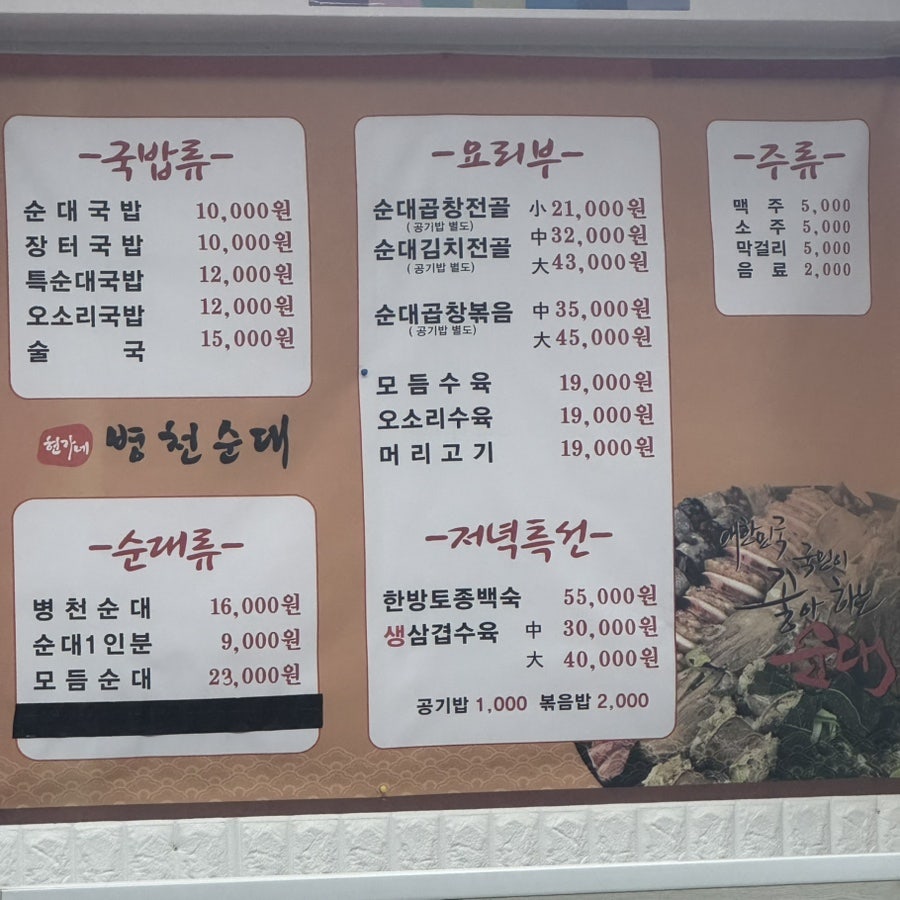 -국밥류-
순대국밥 10,000원
장터국밥 10,000원
특순대국밥 12,000원
오소리국밥 12,000원
술국 15,000원
현가네 병천순대
-순대류-
병천순대 16,000원
순대1인분 9,000원
모듬순대 23,000원
-요리부-
순대곱창전골 小 21,000원
(공기밥 별도)
中 32,000원
순대김치전골
(공기밥 별도)
大 43,000원
순대곱창볶음 中 35,000원
(공기밥 별도)
大 45,000원
모듬수육 19,000원
오소리수육 19,000원
머리고기 19,000원
-저녁특선-
한방토종백숙 55,000원
생삼겹수육 中 30,000원
大 40,000원
공기밥 1,000 볶음밥 2,000
-주류-
맥주 5,000
소주 5,000
막걸리 5,000
음료 2,000
대한민국
국민이
순대